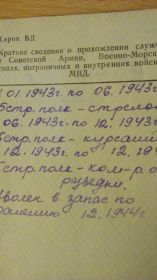 Серия ВД
Краткие сведения о прохождении служ
Советской Армии, Военно-Морск
пограничных и внутренних войск
МВД.
01.1943г. по 06.1943г
стр. полк - стрело
06.1943г. по 12.1943г
стр. полк - курсант
12.1943г. по 12.194
стр. полк - ком-р о
разведки.
волен в запас по
ранению 12.1944г